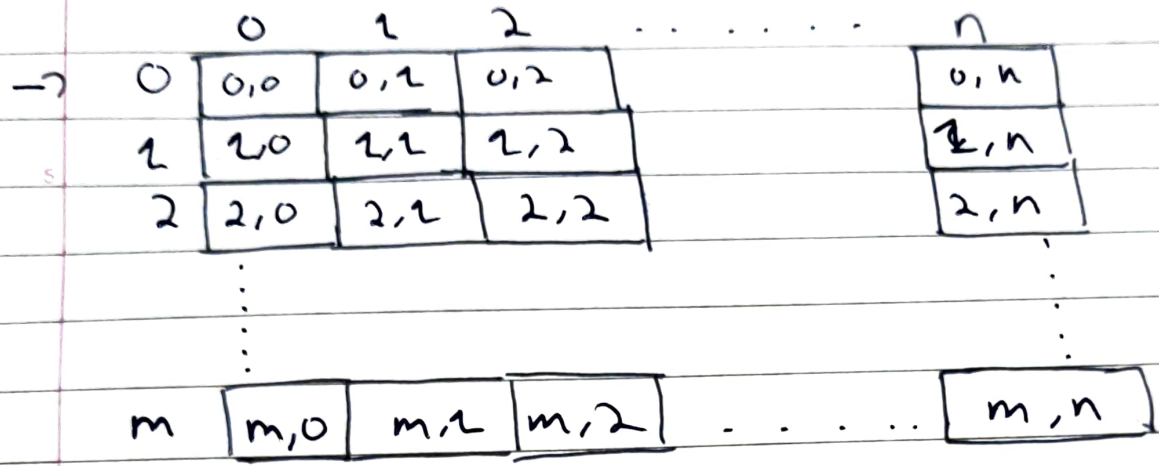 0 1 2 . . . . . . . n
-> 0 0,0 0,1 0,2 0,n
1 1,0 1,1 1,2 1,n
2 2,0 2,1 2,2 2,n
m m,0 m,1 m,2 . . . . . . m,n